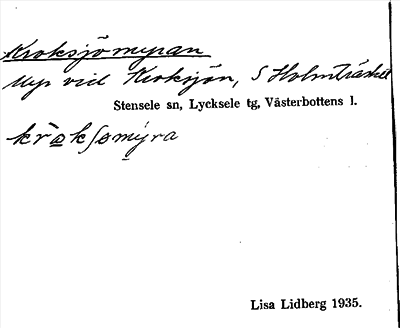 Kroksjömyran
Myr vid Kroksjön, S Holmträsket
Stensele sn, Lycksele tg, Västerbottens l.
kròkʃømýra
Lisa Lidberg 1935.